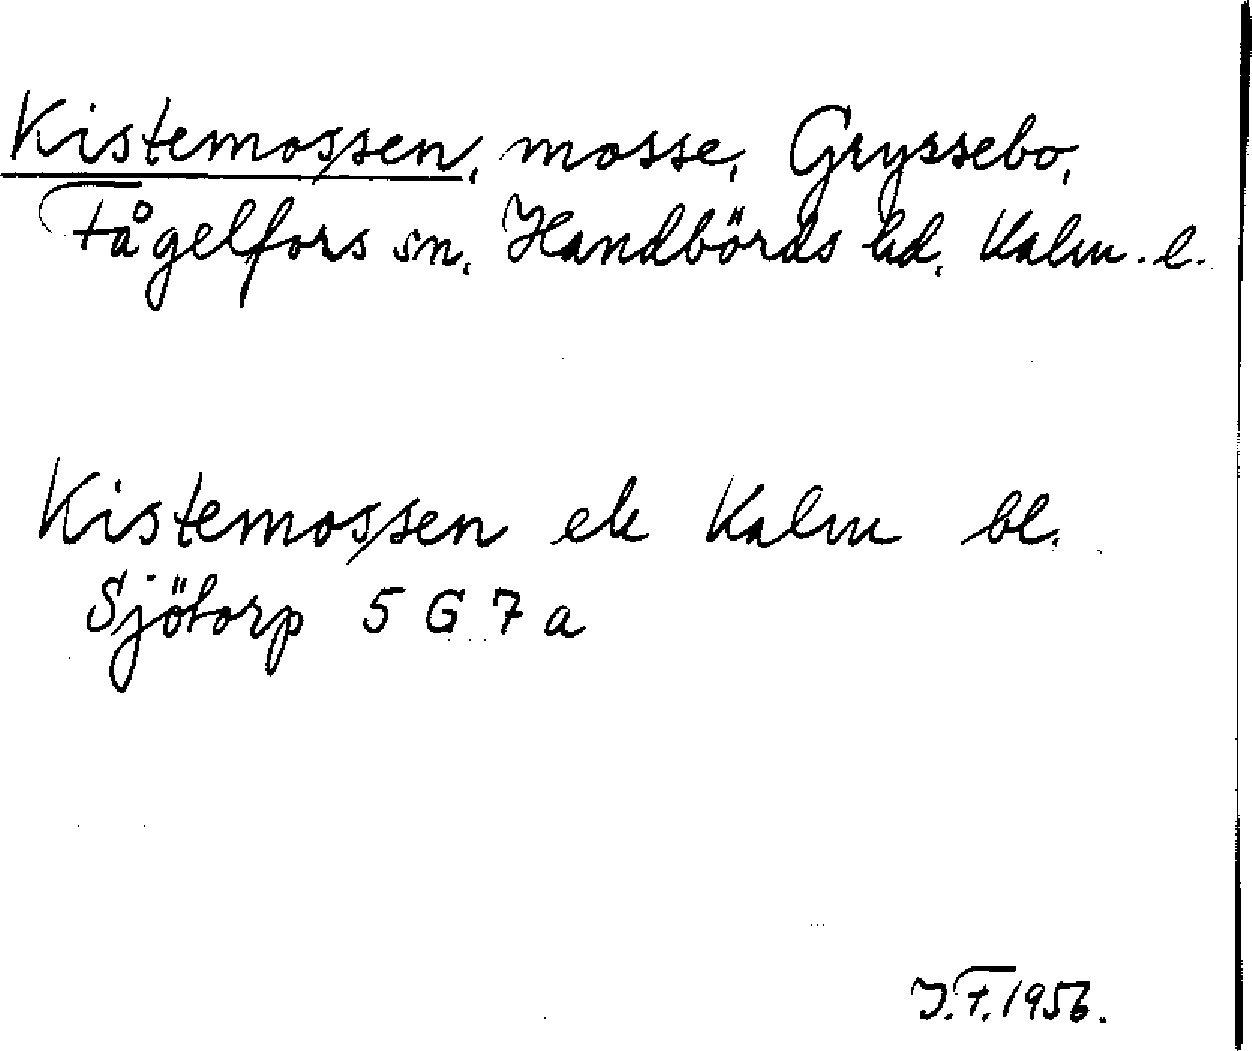 Kistemossen, mosse, Gryssebo,
Fågelfors sn, Handbörds hd, Kalm. l.
Kistemossen ek Kalm bl.
Sjötorp 5 G 7 a
J.F. 1956.